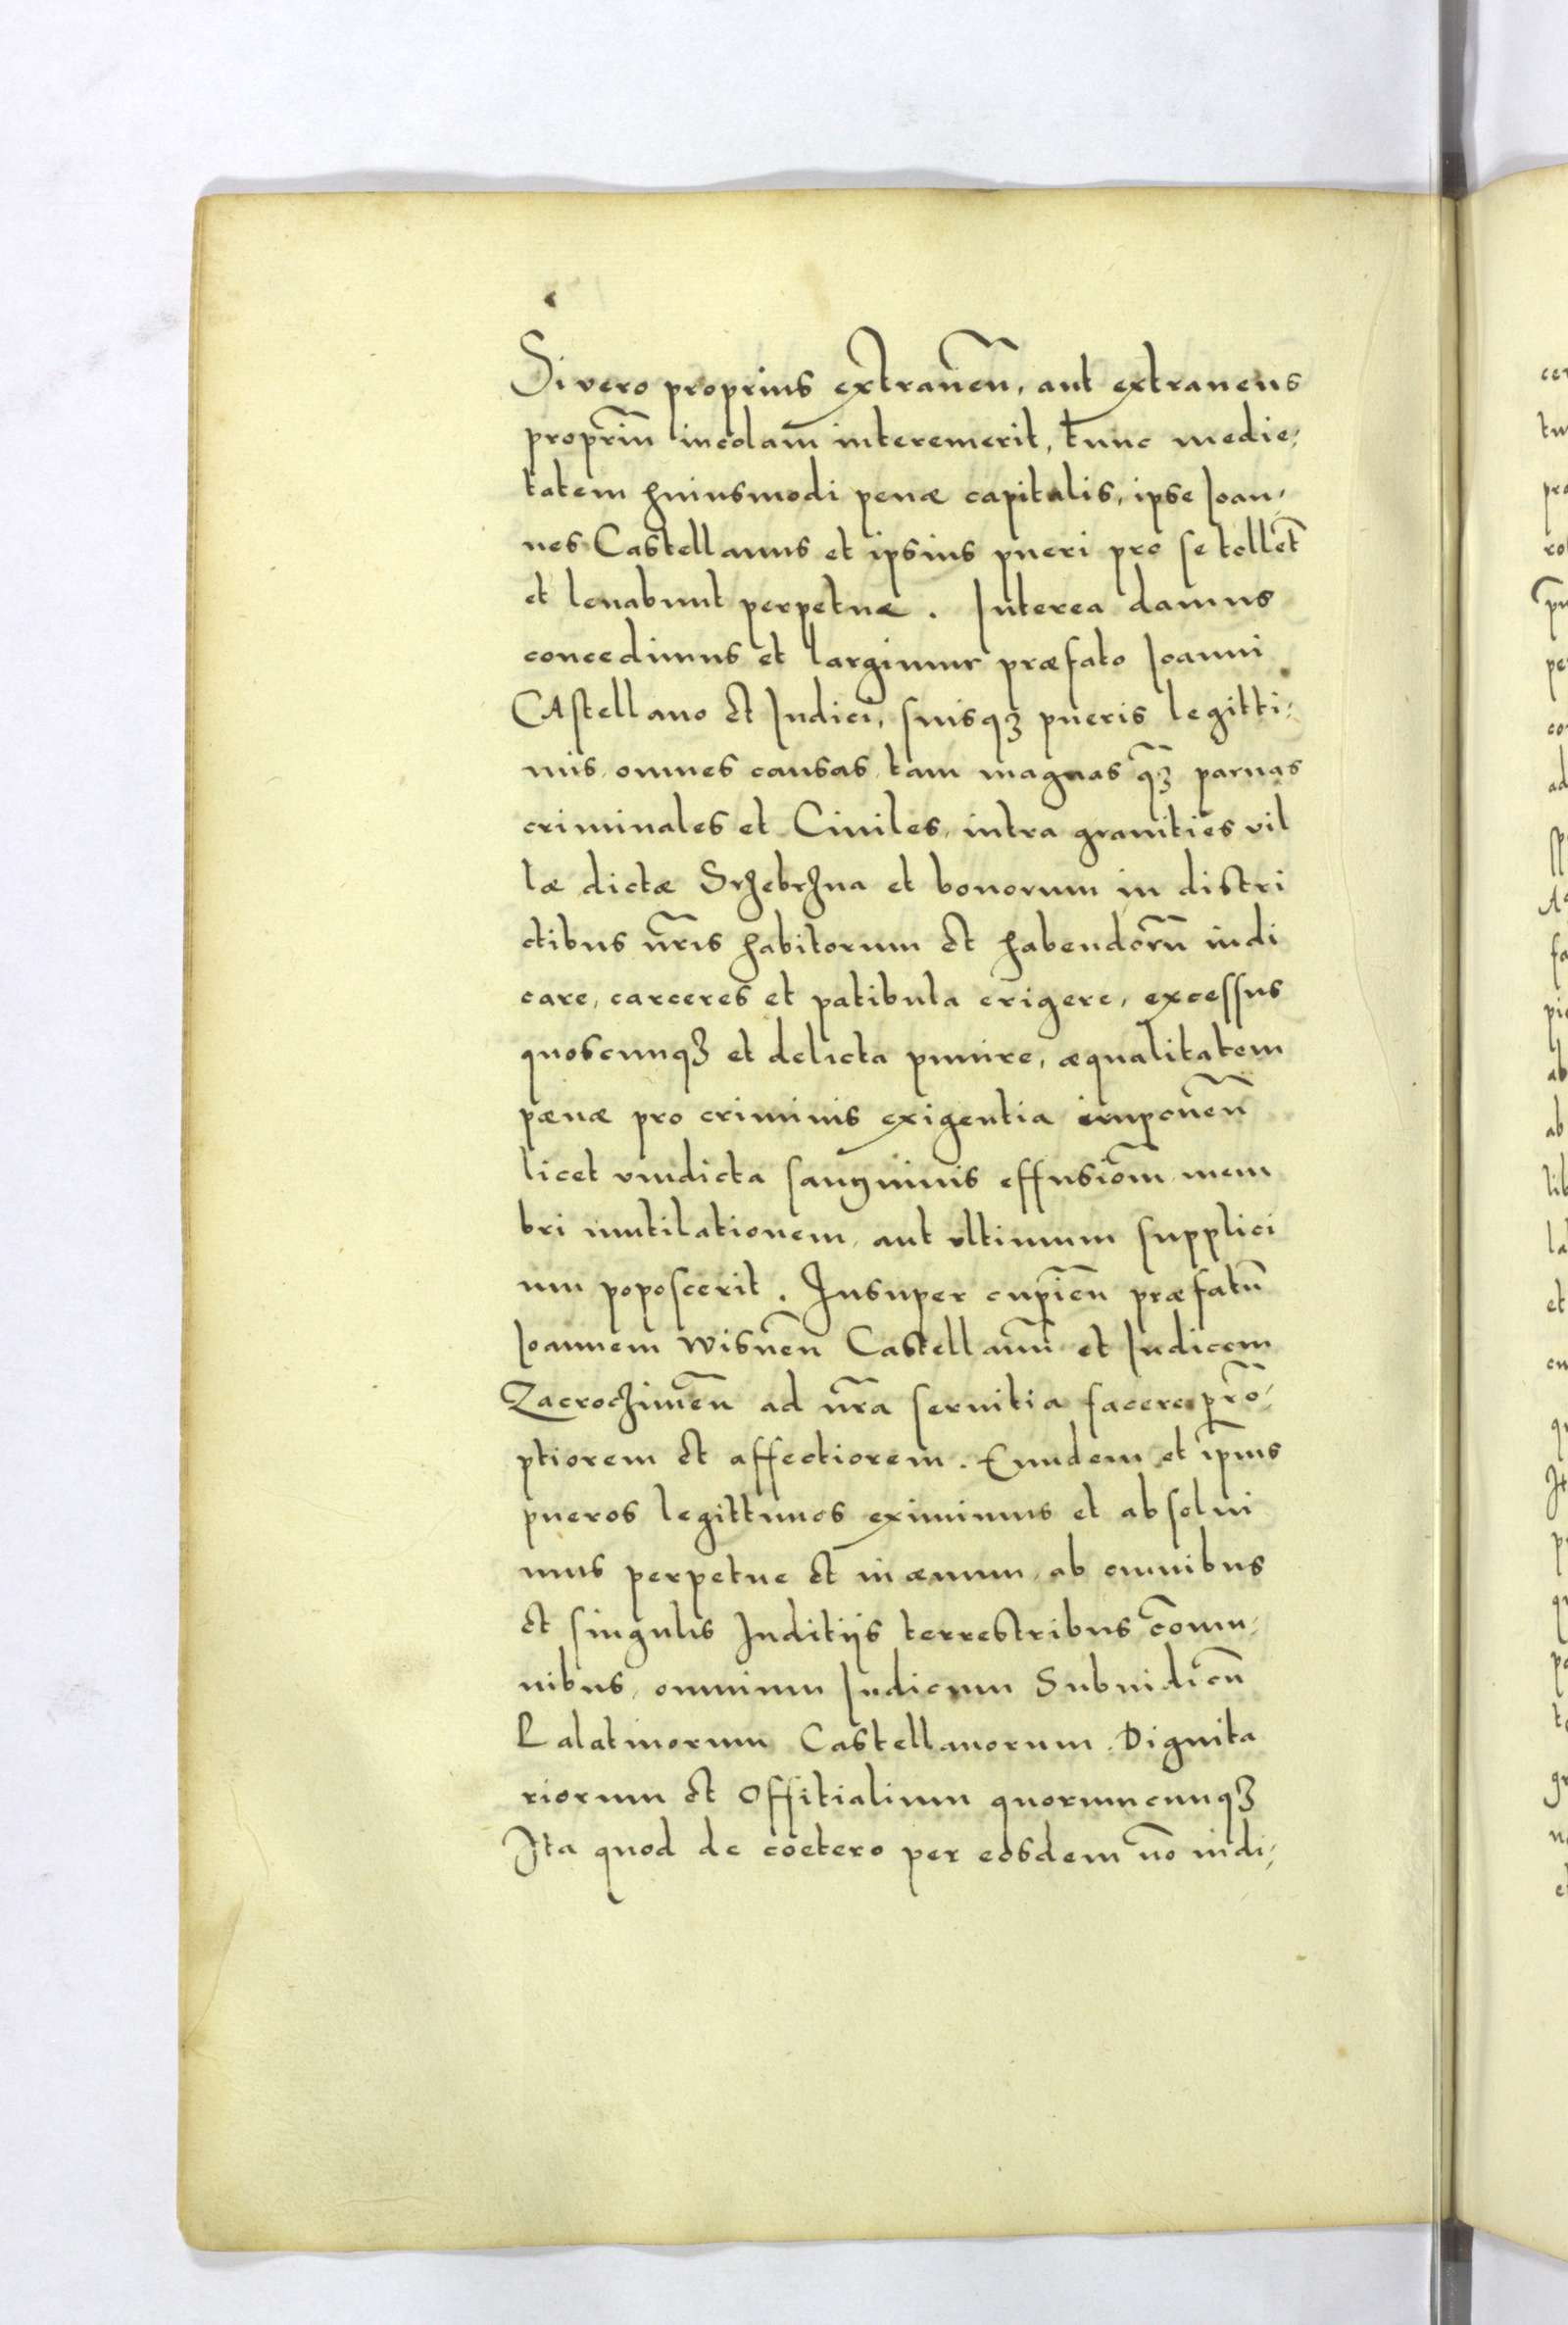 Si vero proprius extraneũ, aut extraneus
propriũ incolam interemerit, tunc medie⸗
tatem huiusmodi penæ capitalis, ipse Ioan⸗
nes Castellanus et ipsius pueri pro se tollẽt
et leuabunt perpetuæ. Interea damus
concedimus et largimur præfato Ioanni
CAstellano et Iudici, suisqꝫ pueris legitti⸗
mis, omnes causas, tam magnas q̃ꝫ paruas
criminales et Ciuiles, intra granities vil
læ dictæ Srzebrzna et bonorum in distri
ctibus nr̃is habitorum et habendorũ iudi
care, carceres et patibula erigere, excessus
quoscunqꝫ et delicta punire, æqualitatem
pænæ pro criminis exigentia imponẽn
licet vindicta sanguinis effusiõm mem
bri mutilationem, aut vltimum supplici
um poposcerit. Insuper cupiẽn præfatũ
Ioannem wisnẽn Castellanũ et Iudicem
Zacrocziměn ad nr̃a seruitia facere prõ⸗
ptiorem et affectiorem. Eundem et ip̃ius
pueros legittimos eximimus et absolui
mus perpetue et in æuum, ab omnibus
et singulis Juditijs terrestribus cõmu⸗
nibus, omnium Iudicum Subiudicũ
Palatinorum Castellanorum. Dignita
riorum et Offitialium quorumcunqꝫ
Ita quod de coetero per eosdem nõ iudi⸗